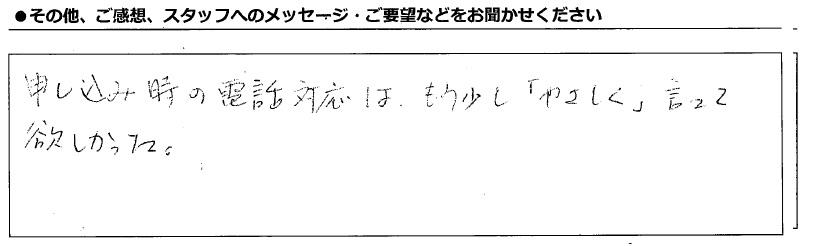 ●その他、ご感想、スタッフへのメッセージ・ご要望などをお聞かせください
申し込み時の電話対応は、もう少し「やさしく」言って
欲しかった。